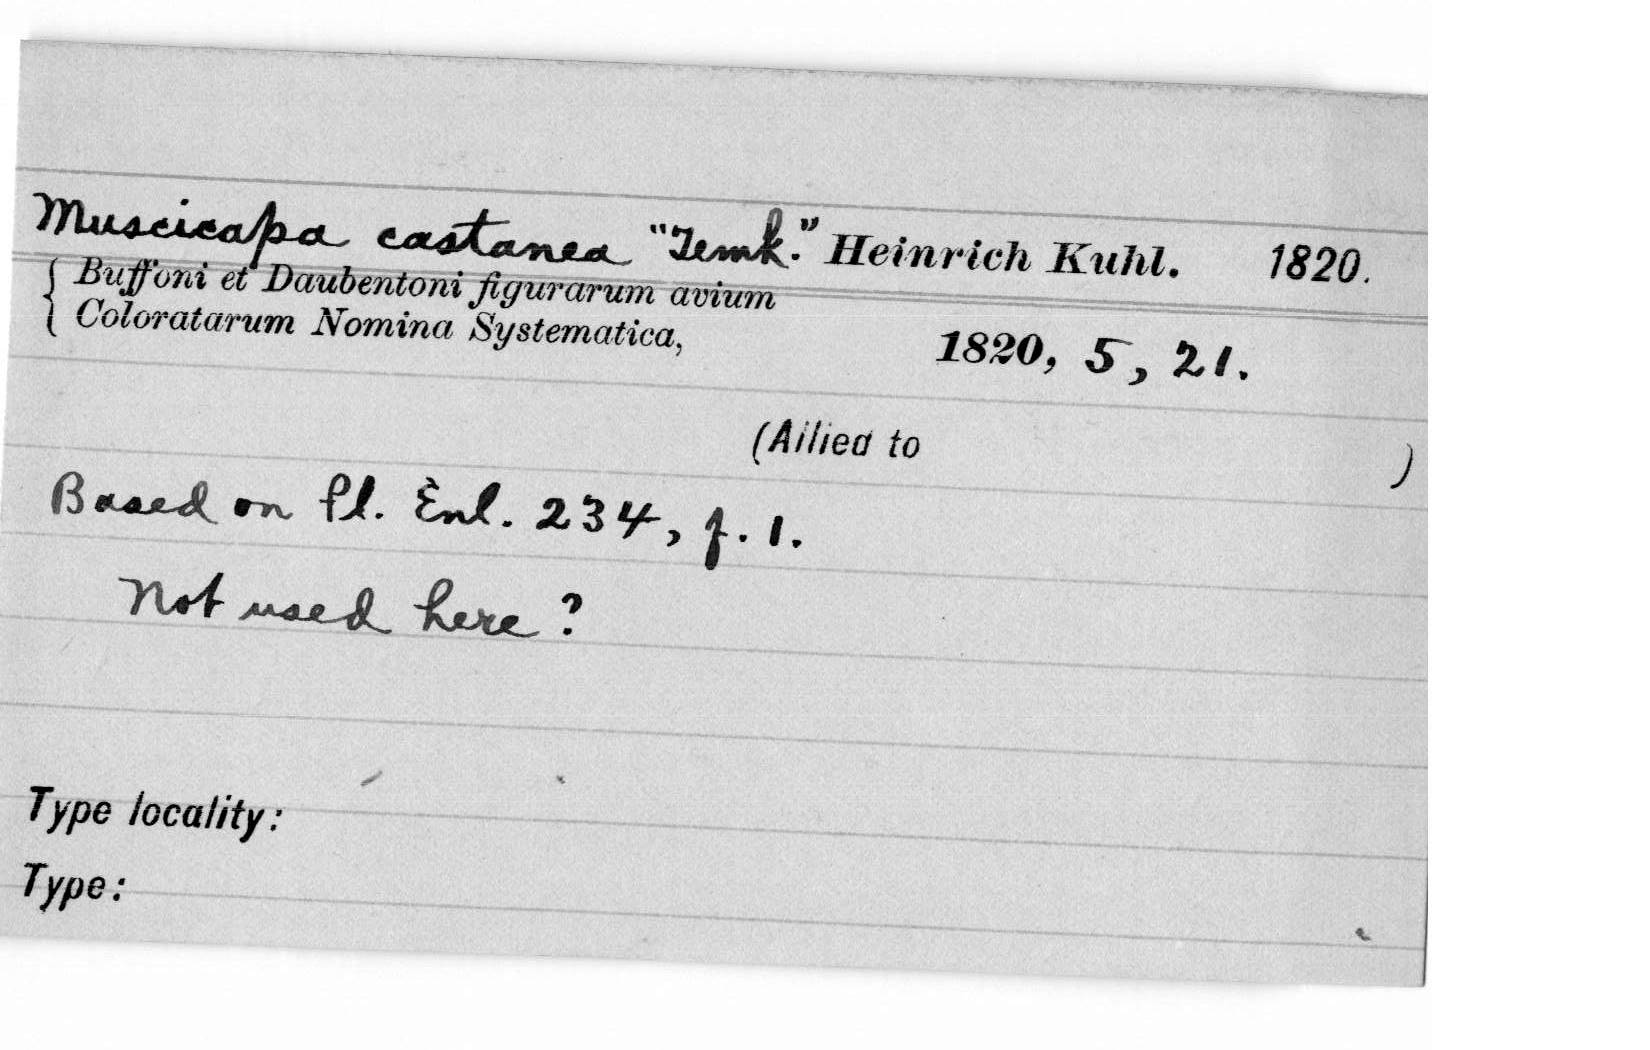 Muscicapa castanea "Temk." Heinrich Kuhl. 1820.
Buffoni et Daubentoni figurarum avium
Coloratarum Nomina Systematica, 1820, 5, 21.
(Allied to )
Based on Pl. Enl. 234, f. 1.
Not used here?
Type locality:
Type: